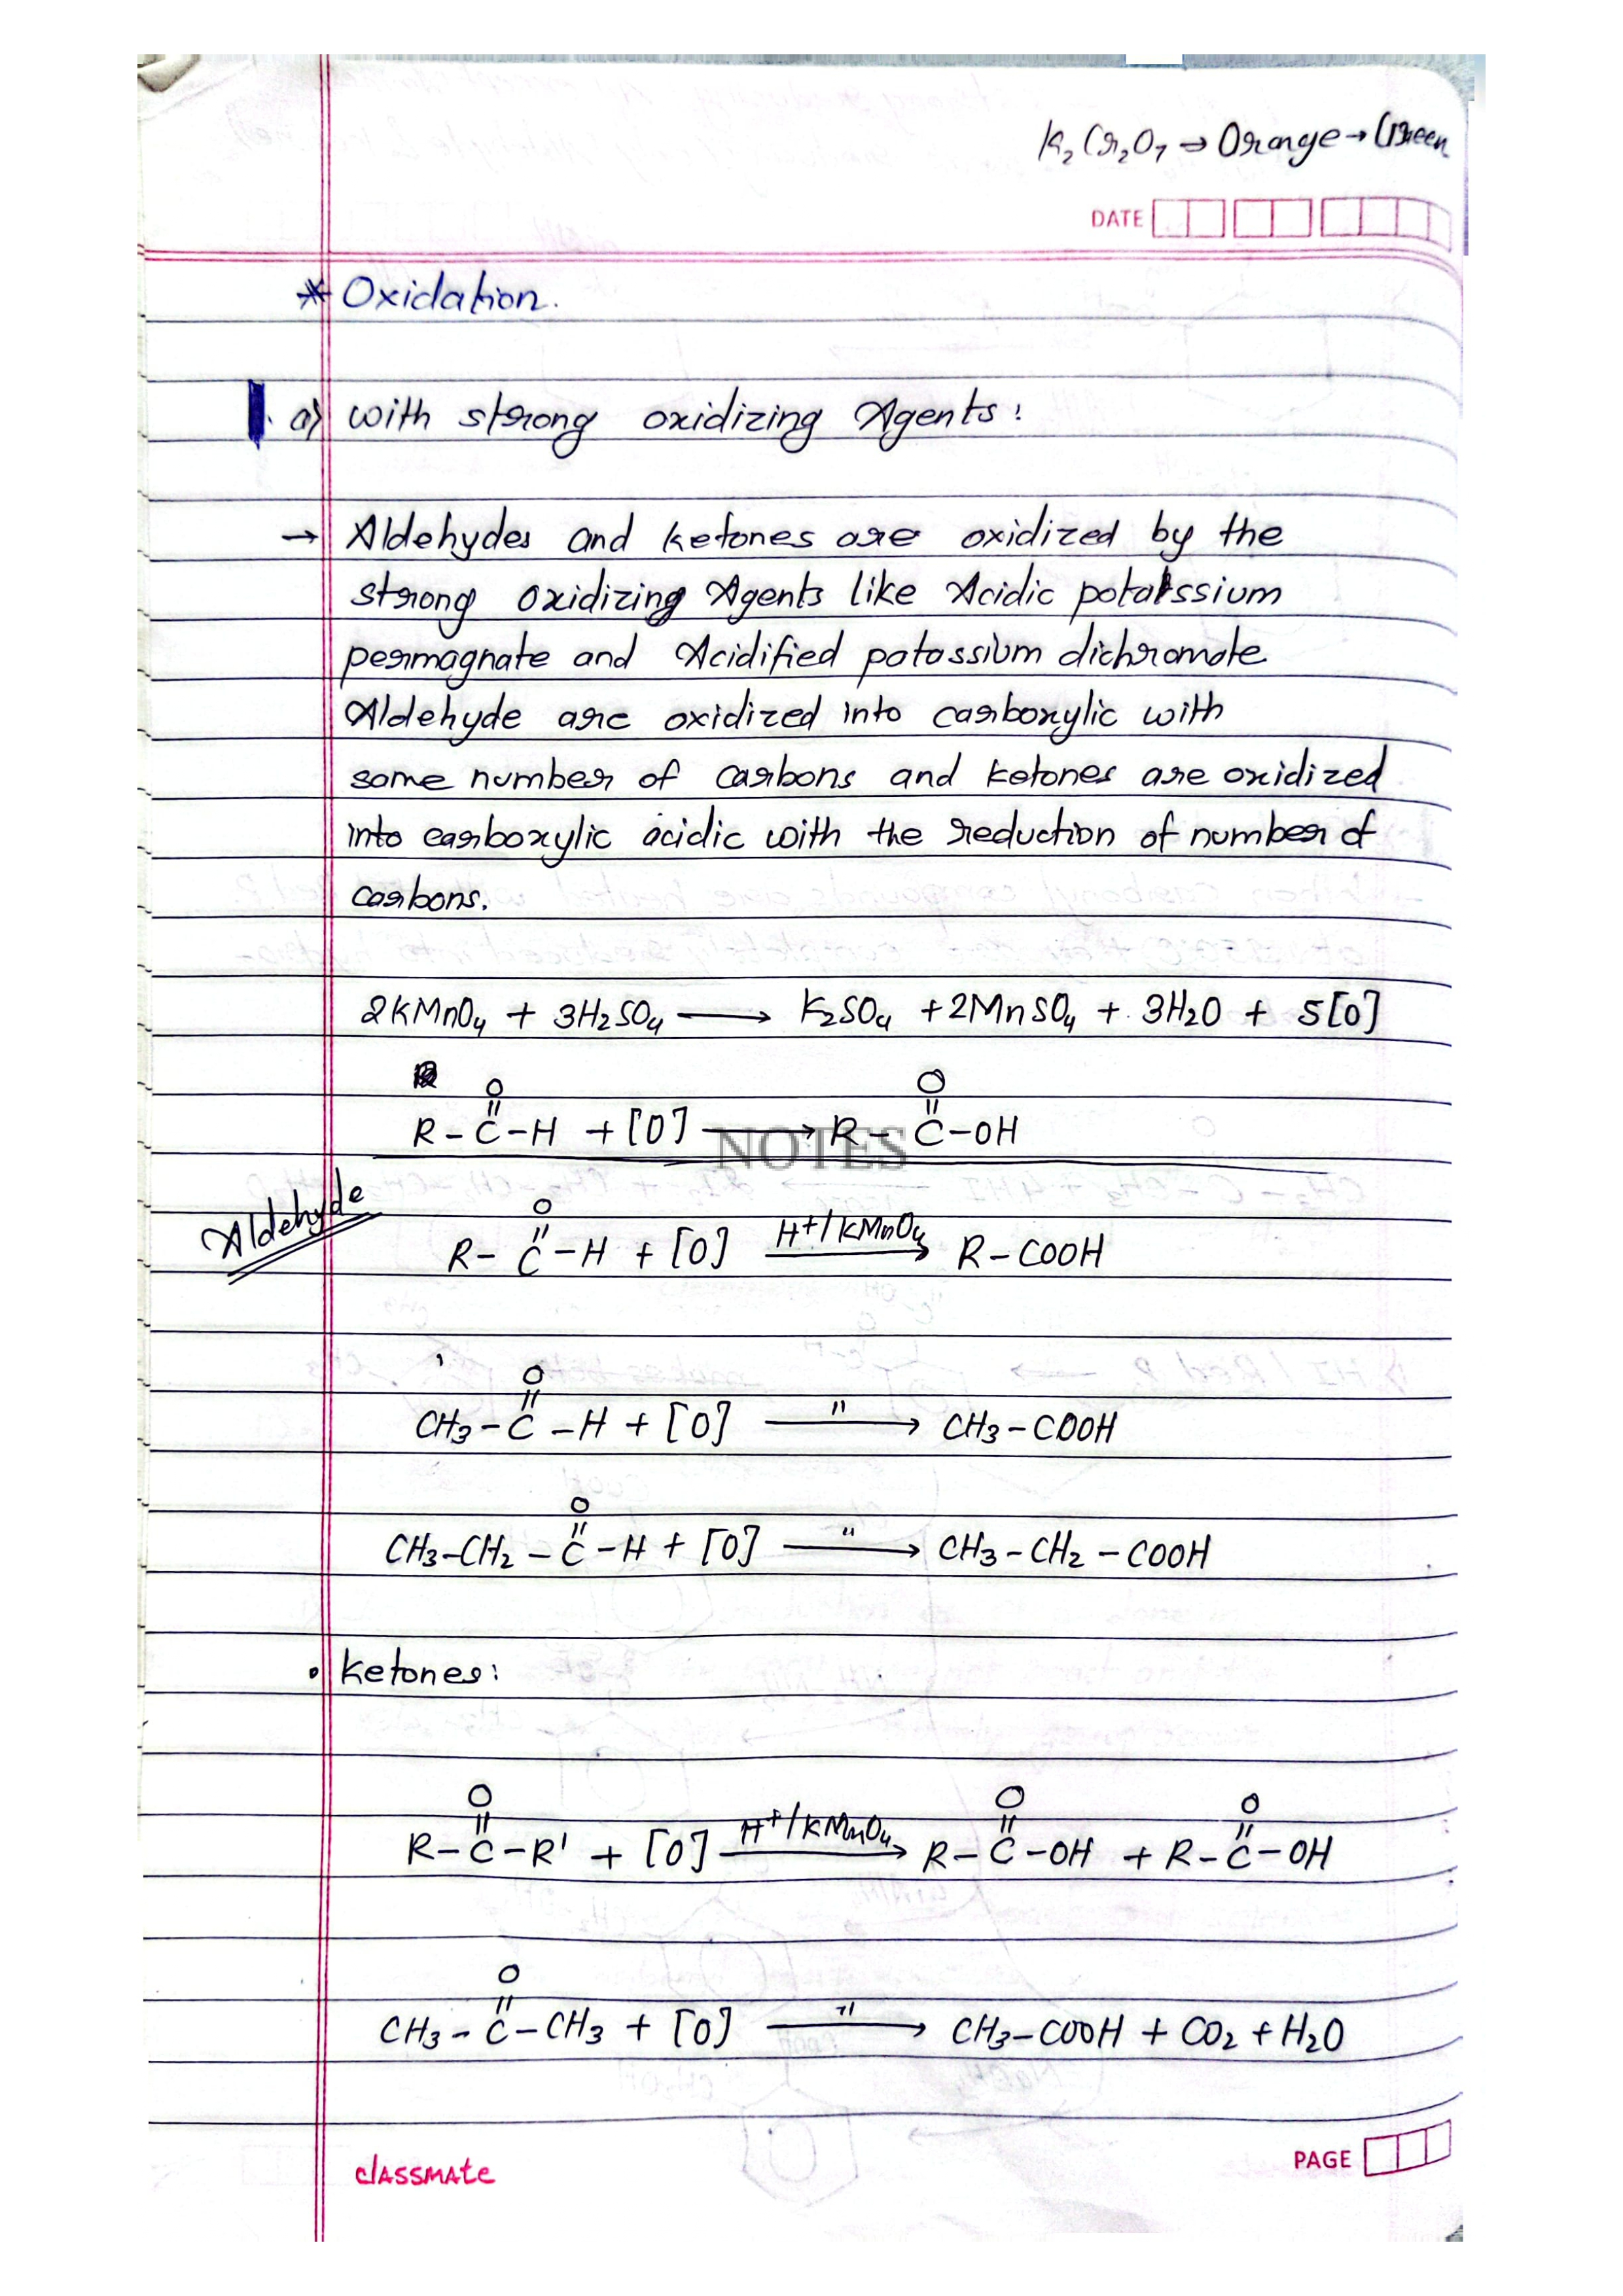 K₂Cr₂O₇ ⇒ Orange → Green
DATE
* Oxidation.
1. a) with strong oxidizing Agents:
→ Aldehydes and ketones are oxidized by the
strong oxidizing Agents like Acidic potatssium
permagnate and Acidified potassium dichromate
Aldehyde are oxidized into carboxylic with
same number of carbons and ketones are oxidized
into carboxylic acidic with the reduction of number of
carbons.
2KMnO₄ + 3H₂SO₄ ⟶ K₂SO₄ + 2MnSO₄ + 3H₂O + 5[O]
O O
R - C - H + [O] ⟶ R - C - OH
NOTES
Aldehyde
O
R - C - H + [O] H⁺/KMnO₄ ⟶ R - COOH
O
CH₃ - C - H + [O] " ⟶ CH₃ - COOH
O
CH₃-CH₂ - C - H + [O] " ⟶ CH₃ - CH₂ - COOH
• Ketones:
O O O
R - C - R' + [O] H⁺/KMnO₄ ⟶ R - C - OH + R - C - OH
O
CH₃ - C - CH₃ + [O] " ⟶ CH₃-COOH + CO₂ + H₂O
classmate
PAGE